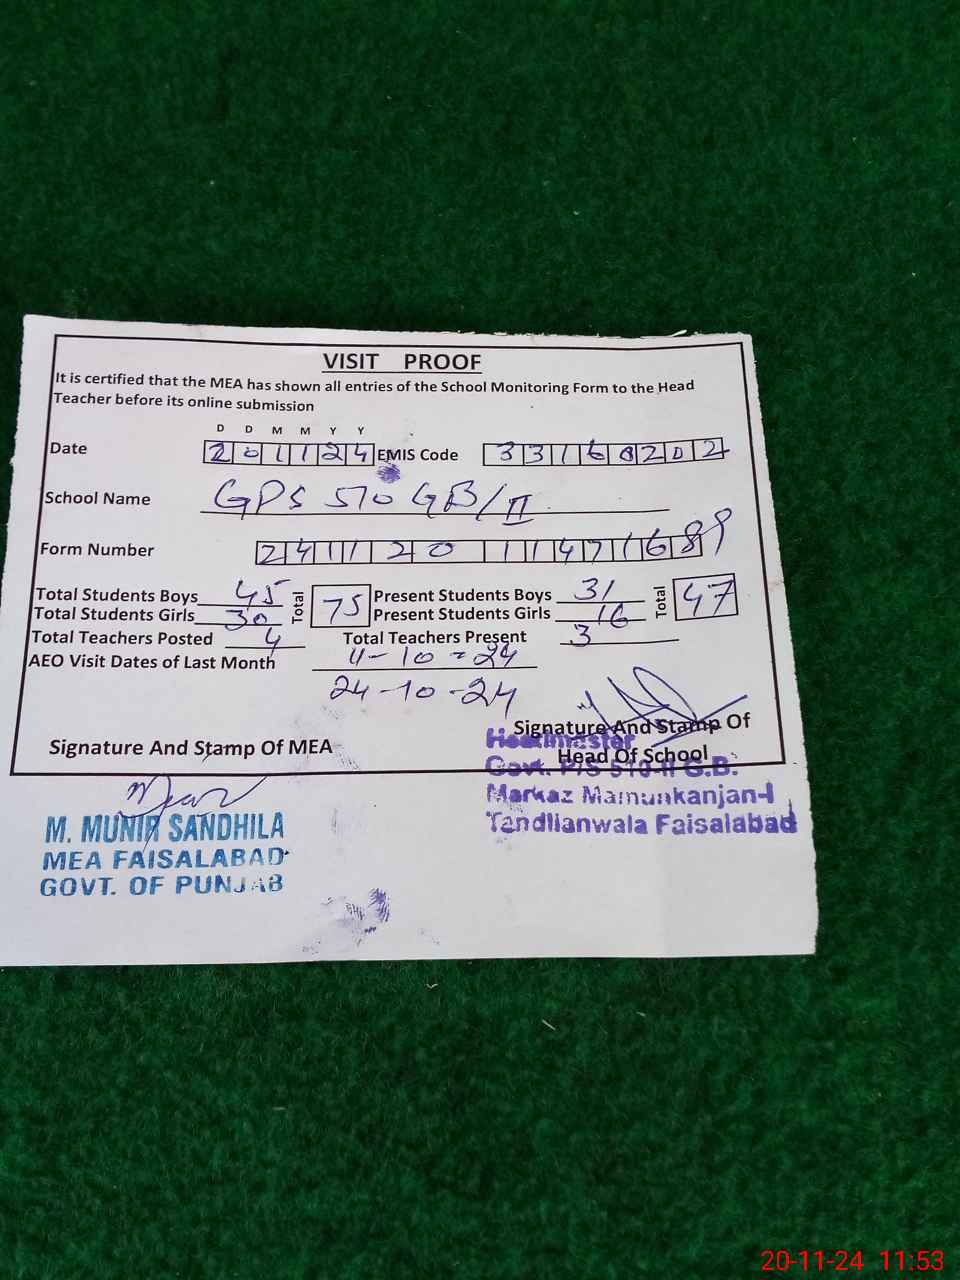 VISIT PROOF
It is certified that the MEA has shown all entries of the School Monitoring Form to the Head
Teacher before its online submission
D D M M Y Y
Date 201124 EMIS Code 33160202
School Name GPS 570 GB/II
Form Number 24112011471689
Total Students Boys 45 Total 75 Present Students Boys 31 Total 47
Total Students Girls 30 Present Students Girls 16
Total Teachers Posted 4 Total Teachers Present 3
AEO Visit Dates of Last Month 4-10-24
24-10-24
Signature And Stamp Of MEA
Signature And Stamp Of
Head Of School
Headmaster
Govt. P/S 510-II G.B.
Markaz Mamunkanjan-I
Tandlianwala Faisalabad
M. MUNIR SANDHILA
MEA FAISALABAD
GOVT. OF PUNJAB
20-11-24 11:53